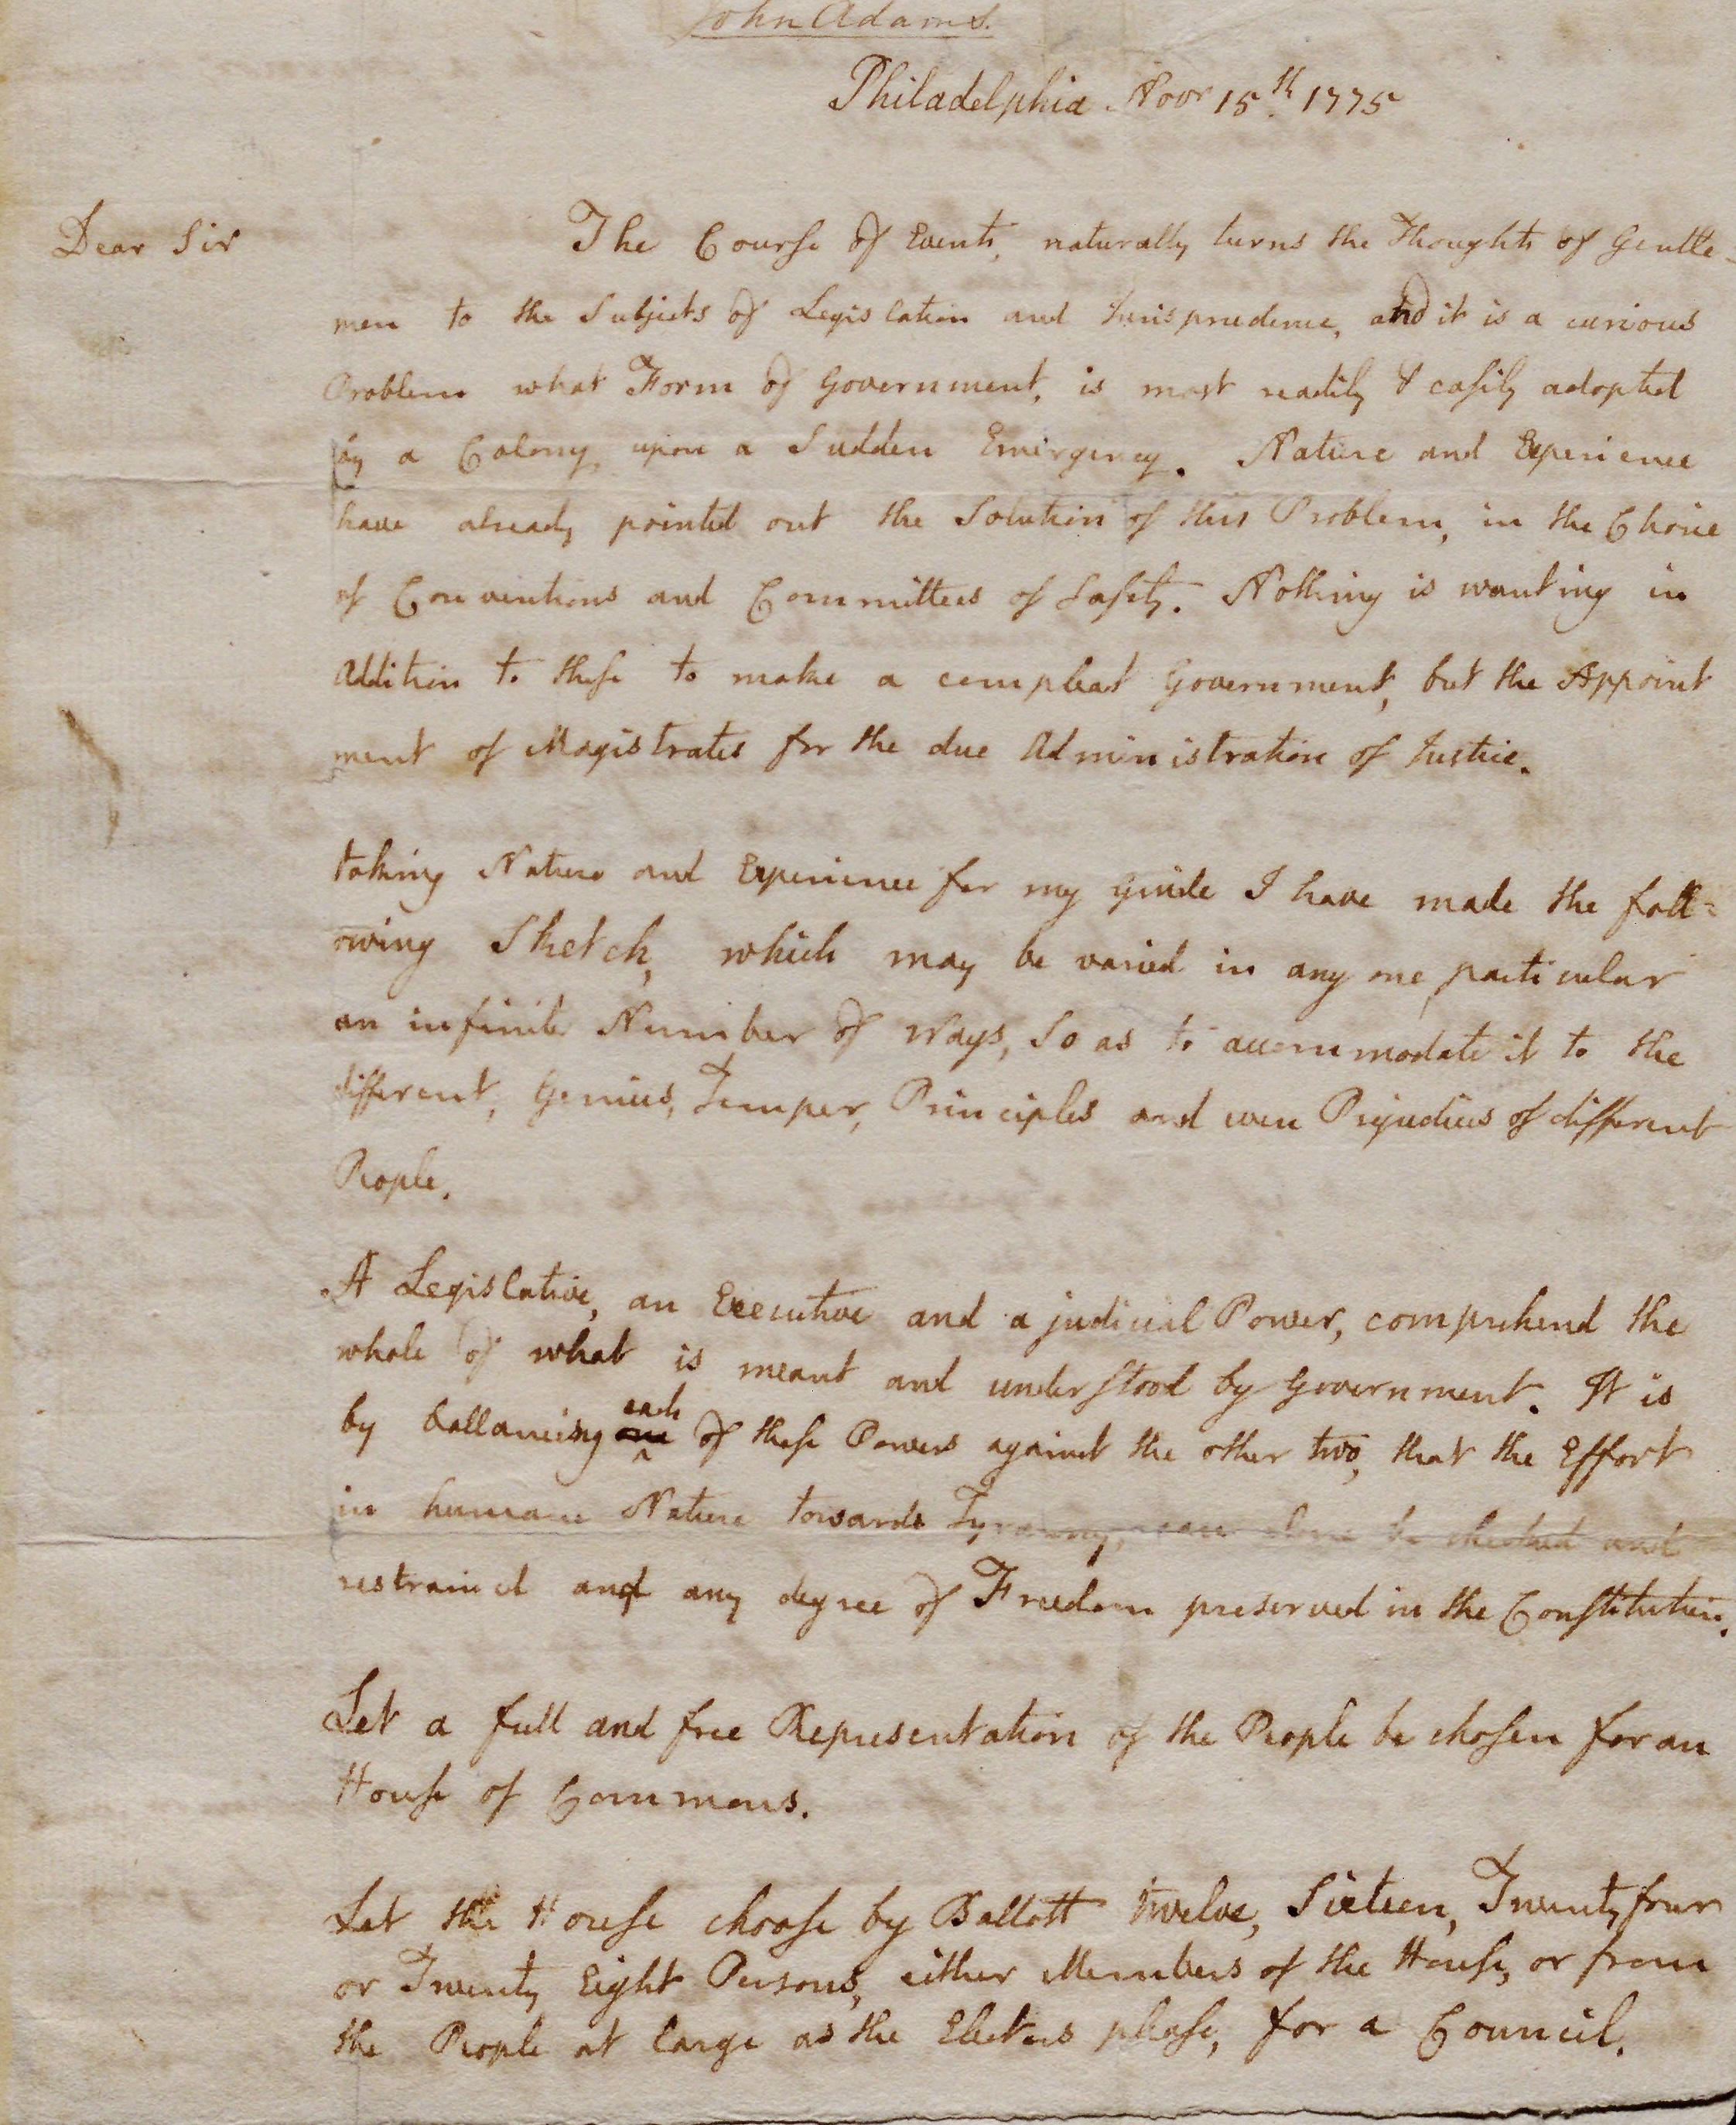 John Adams.
Philadelphia Novr 15th. 1775
Dear Sir
The Course of Events, naturally turns the Thoughts of Gentle-
men to the Subjects of Legislation and Jurisprudence, and it is a curious
Problem what Form of Government, is most readily & easily adopted
by a Colony, upon a Sudden Emergency. Nature and Experience
have already pointed out the Solution of this Problem, in the Choice
of Conventions and Committees of Safety. Nothing is wanting in
Addition to these to make a compleat Government, but the Appoint
ment of Magistrates for the due Administration of Justice.
taking Nature and Experience for my Guide I have made the foll=
owing Sketch, which may be varied in any one particular
an infinite Number of Ways, So as to accommodate it to the
different, Genius, Temper, Principles and even Prejudices of different
People.
A Legislative, an Executive and a judicial Power, comprehend the
whole of what is meant and understood by Government. It is
by ballancing one each of these Powers against the other two, that the Effort
in humane Nature towards Tyranny, can alone be checked and
restraind and any degree of Freedom preserved in the Constitution.
Let a full and free Representation of the People be chosen for an
House of Commons.
Let the House choose by Ballott twelve, Sixteen, Twenty four
or Twenty Eight Persons, either Members of the House, or from
the People at large as the Electors please, for a Council.